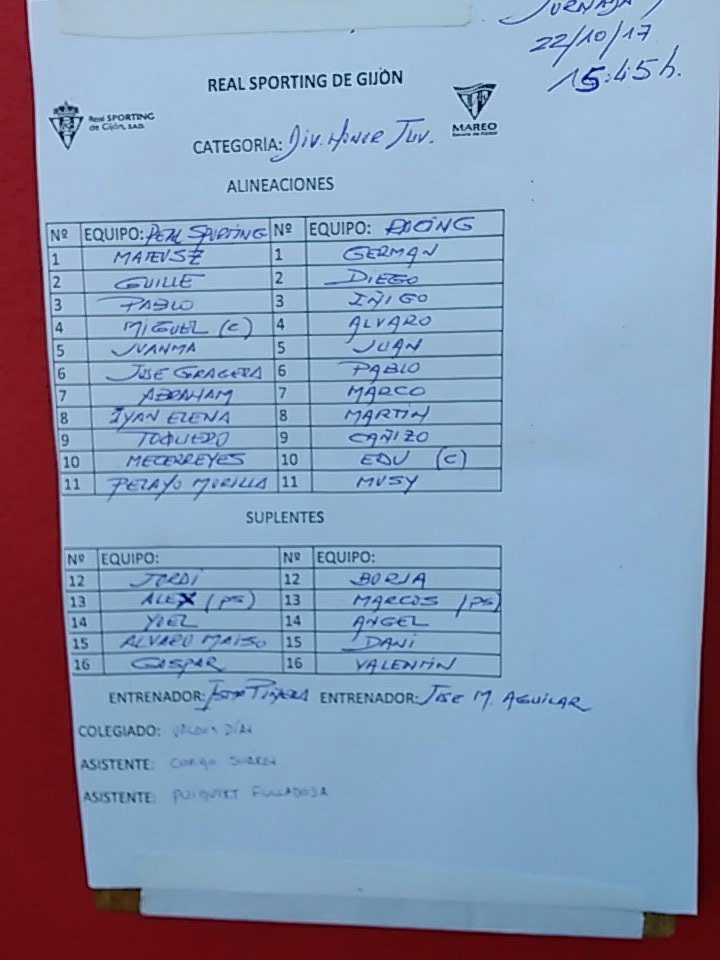 JORNADA
22/10/17
15:45 h.
REAL SPORTING DE GIJÓN
Real SPORTING
de Gijón, S.A.D.
MAREO
CATEGORIA: DIV. HONOR JUV.
ALINEACIONES
Nº EQUIPO: REAL SPORTING Nº EQUIPO: RACING
1 MATEUSZ 1 GERMAN
2 GUILLE 2 DIEGO
3 PABLO 3 IÑIGO
4 MIGUEL (C) 4 ALVARO
5 JUANMA 5 JUAN
6 JOSE GRAGERA 6 PABLO
7 ABRAHAM 7 MARCO
8 IYAN ELENA 8 MARTIN
9 TOQUERO 9 CAÑIZO
10 MECERREYES 10 EDU (C)
11 PELAYO MORILLA 11 MUSY
SUPLENTES
Nº EQUIPO: Nº EQUIPO:
12 JORDI 12 BORJA
13 ALEX (PS) 13 MARCOS (PS)
14 YOEL 14 ANGEL
15 ALVARO 15 DANI
16 GASPAR 16 VALENTIN
ENTRENADOR: ENTRENADOR: JOSE M. AGUILAR
COLEGIADO: DÍAZ
ASISTENTE: SUÁREZ
ASISTENTE: FULLADOSA